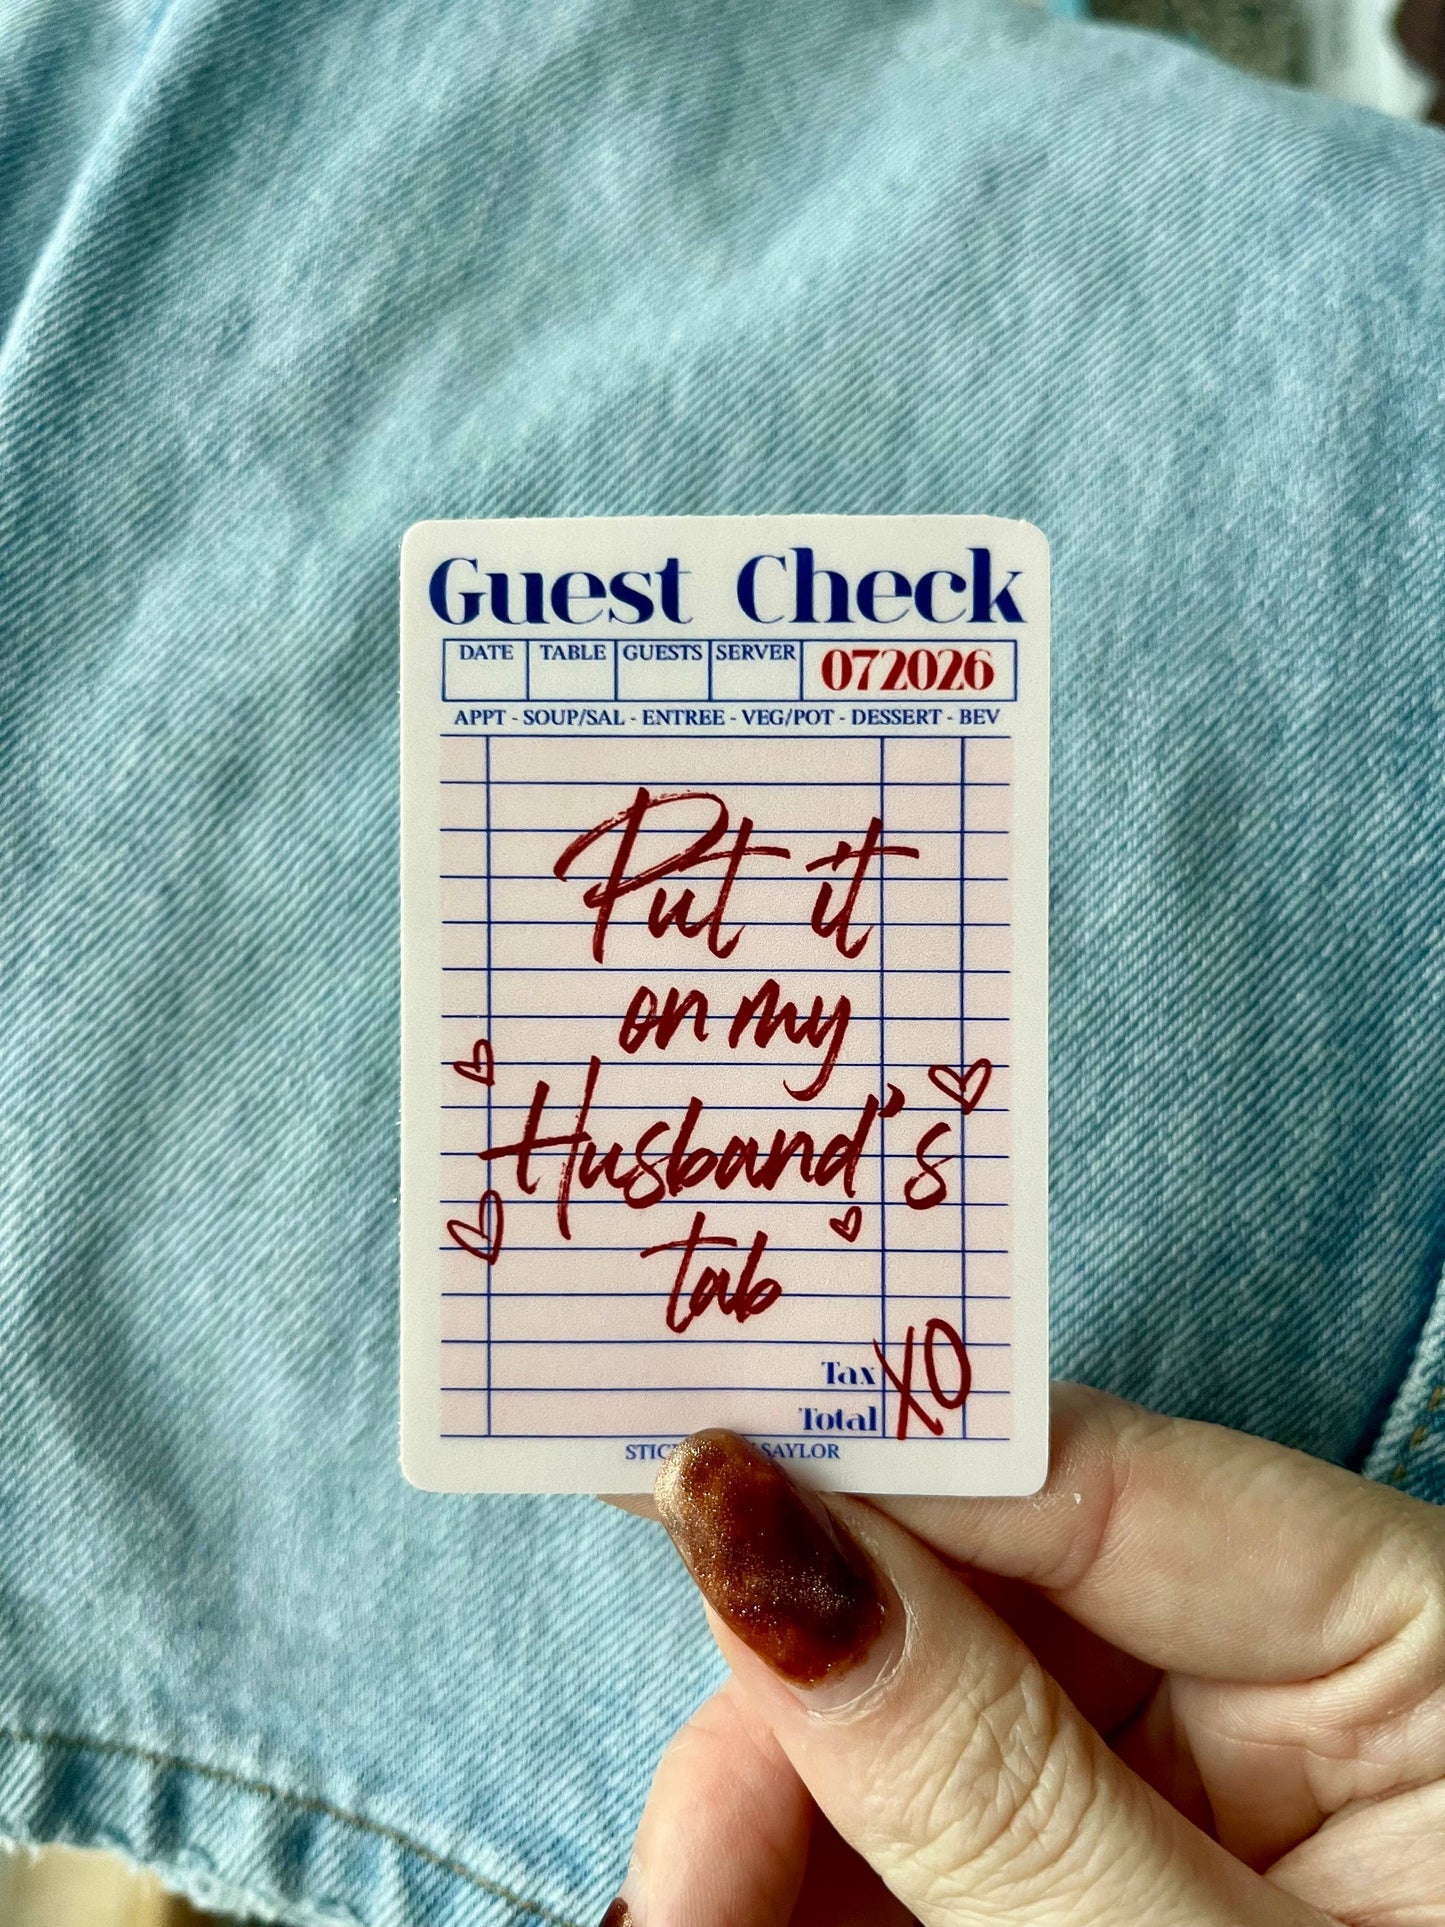 Guest Check
DATE TABLE GUESTS SERVER 072026
APPT - SOUP/SAL - ENTREE - VEG/POT - DESSERT - BEV
Put it
on my
Husband's
tab
Tax XO
Total
SAYLOR